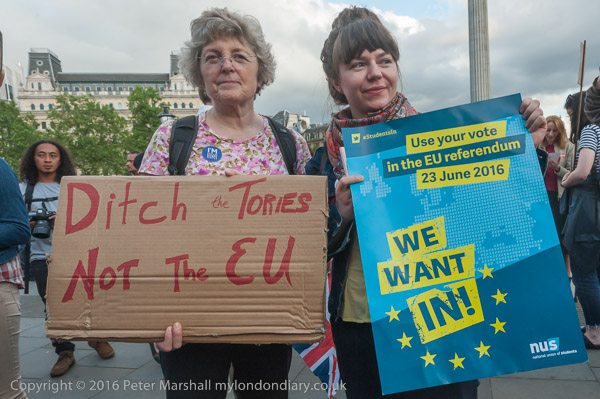 Ditch the TORIES
NOT THE EU
I'M
#StudentsIn
Use your vote
in the EU referendum
23 June 2016
WE
WANT
IN!
nus
national union of students
Copyright © 2016 Peter Marshall mylondondiary.co.uk